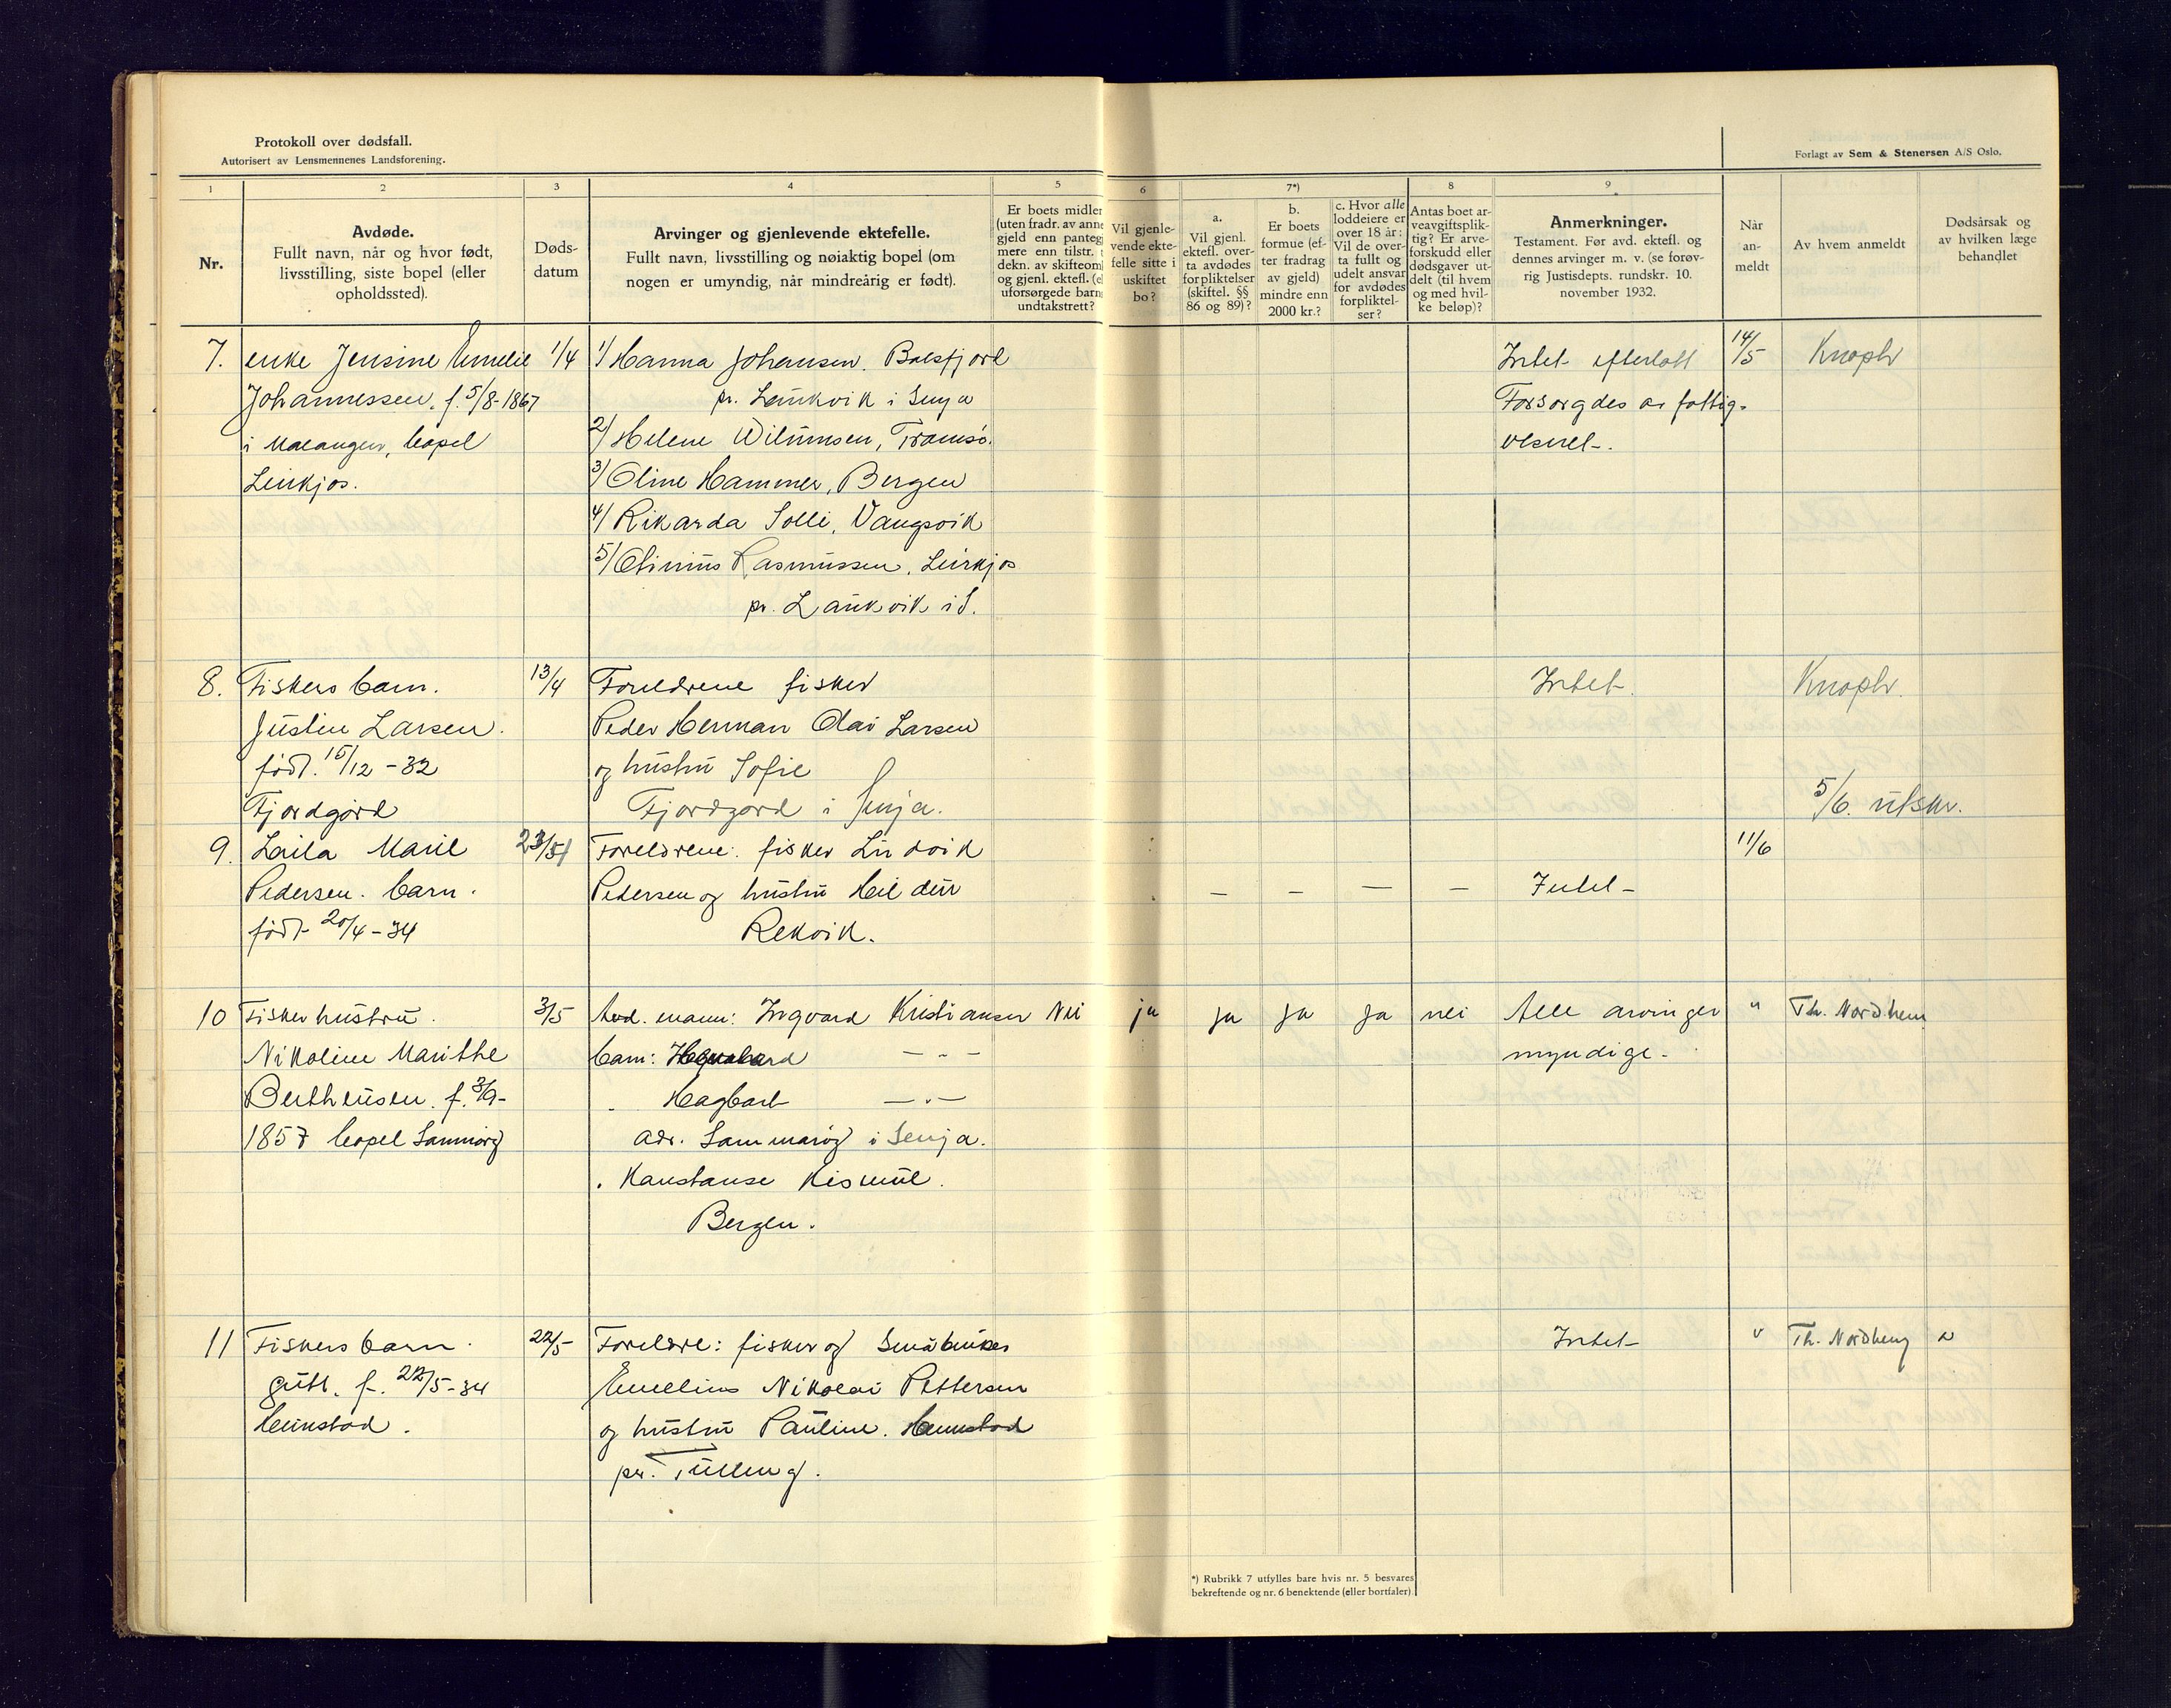 Protokoll over dødsfall.
Autorisert av Lensmennenes Landsforening.
Forlagt av Sem & Stenersen A/S Oslo.
1 2 3 4 5 6 7*) 8 9
Nr.
Avdøde.
Fullt navn, når og hvor født,
livsstilling, siste bopel (eller
opholdssted).
Døds-
datum
Arvinger og gjenlevende ektefelle.
Fullt navn, livsstilling og nøiaktig bopel (om
nogen er umyndig, når mindreårig er født).
Er boets midler
(uten fradr. av anne
gjeld enn panteg
mere enn tilstr. t
dekn. av skifteom
og gjenl. ektefl. (el
uforsørgede barn
undtakstrett?
Vil gjenle-
vende ekte-
felle sitte i
uskiftet
bo?
a.
Vil gjenl.
ektefl. over-
ta avdødes
forpliktelser
(skiftel. §§
86 og 89)?
b.
Er boets
formue (ef-
ter fradrag
av gjeld)
mindre enn
2000 kr.?
c. Hvor alle
loddeiere er
over 18 år:
Vil de over-
ta fullt og
udelt ansvar
for avdødes
forpliktel-
ser?
Antas boet ar-
veavgiftsplik-
tig? Er arve-
forskudd eller
dødsgaver ut-
delt (til hvem
og med hvil-
ke beløp)?
Anmerkninger.
Testament. Før avd. ektefl. og
dennes arvinger m. v. (se forøv-
rig Justisdepts. rundskr. 10.
november 1932.
Når
an-
meldt
Av hvem anmeldt
Dødsårsak og
av hvilken læge
behandlet
7. enke Jensine Emelie 1/4 1/ Hanna Johansen. Baesfjord Intet efterlatt 14/5 Knoph
Johannessen. f. 5/8-1867 pr. Laukvik i Senja Forsørgdes av fattig-
i Malangen, bopel 2/ Helene Wilumsen, Tromsø. vesnet.
Leirkjos. 3/ Oline Hammer, Bergen
4/ Rikarda Solli, Vangsvik
5/ Olinius Rasmussen, Leirkjos
pr. Laukvik i S.
8. Fiskers barn. 13/4 Foreldrene fisker Intet. Knoph.
Justin Larsen. Peder Herman Olai Larsen
født. 15/12-32 og hustru Sofie
Fjordgård Fjordgård i Senja. 5/6. utskr.
9. Laila Marie 23/5 Foreldrene: fisker Ludvik 11/6
Pedersen. barn. Pedersen og hustru Hildur - - - - Intet
født 20/4-34 Rekvik.
10 Fisker hustru. 3/5 Avd. mann: Ingvard Kristiansen Nei ja ja ja ja nei Alle arvinger " Th. Nordheim
Nikoline Marithe barn: - " - myndige.
Bertheusen. f. 3/9- Hagbart - " -
1857 bopel adr. i Senja.
Konstanse
Bergen.
11 Fiskers barn. 22/5 Foreldre: fisker og Småbruker Intet " Th. Nordheng
gutt. f. 22/5-34 Emelius Nikolai Pettersen
Heimstad. og hustru Pauline. Heimstad
pr. Tulleng.
*) Rubrikk 7 utfylles bare hvis nr. 5 besvares
bekreftende og nr. 6 benektende (eller bortfaler).